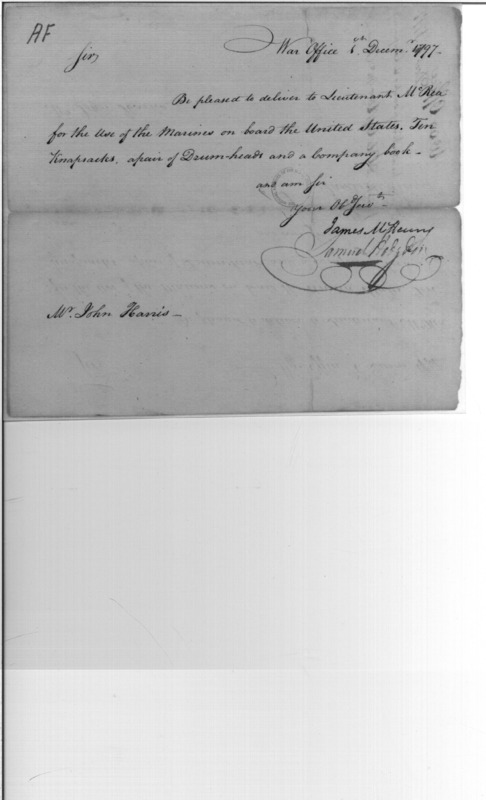 AF
War Office 6th Decemr. 1797.
Sir,
Be pleased to deliver to Lieutenant McRea
for the Use of the Marines on board the United States. Ten
Knapsacks, a pair of Drum-heads and a Company book—
and am Sir
Your Ob Servt.
James McHenry
Samuel Hodgdon
Mr. John Harris—